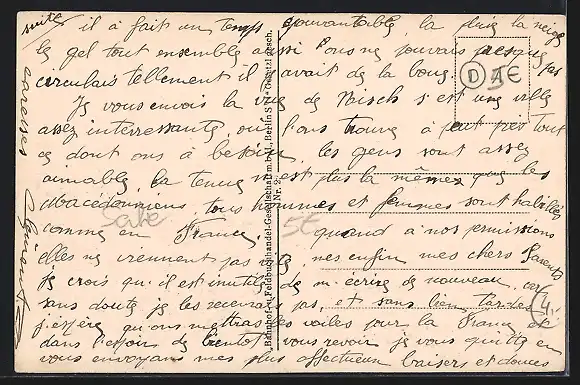 suite il a fait un temps épouvantable la pluie la neige
le gel tout ensemble aussi l'ons ne pouvais presque pas
circulais tellement il y avait de la boue
Je vous envois la vue de Nisch s'est une ville
assez interressante, ou l'ons trouve à peut près tout
ce dont ons à besoin, les gens sont assez
aimable, la tenue n'est plus la même que les
Macédoniens, tous hommes et femmes sont habillés
comme en France quand à nos permissions
elles ne viennent pas vite enfin mes chers Parents
je crois qu'il est inutile de m'écrire de nouveau, car
sans doute je les recevrais pas, et sans bien tarder
j'espère qu'ons mettras les voiles pour la France, et
dans l'espoir de bientot vous revoir je vous quitte en
vous envoyant mes plus affectueux baisers et douces
caresses
D A E
5
Sabe
5t
4,-
Bahnhof- u. Feldbuchhandel-Gesellschaft m.b.H., Berlin S
Gesetzl. gesch.
Nr. 2